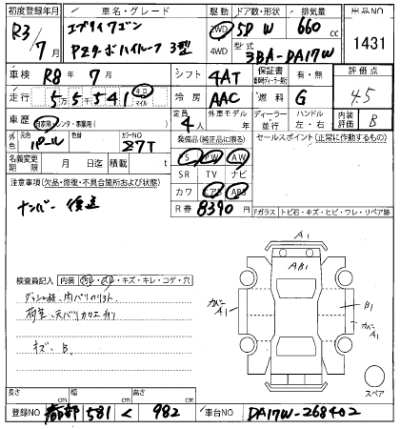 初度登録年月 車名・グレード 駆動 ドア数・形状 排気量 出品NO
R3/7月 エブリイワゴン 2WD 5D W 660cc 1431
PZターボハイルーフ 3型 4WD 型式 3BA-DA17W
車検 R8年7月 シフト 4AT 保証書 有・無 評価点
走行 5万5千541 キロ マイル 冷房 AAC 燃料 G 4.5
車歴 自家用・レンタ・事業用( ) 定員 4人 外車モデル 年 ディーラー 並行 ハンドル 左・右 内装評価 B
色 元色 パール 色替 カラーNO Z7T 装備品(純正品に限る) セールスポイント(正常に作動するもの)
名義変更期限 月 日迄 積載 t S PW AW
注意事項(欠品・修復・不具合箇所および状態) SR TV ナビ
ナンバー 後送 カワ エアB ABS
R券 8390円 Fガラス トビ石・キズ・ヒビ・ワレ・リペア跡
A1
AB1
検査員記入 内装 ・キズ・キレ・コゲ・穴
カバーA1 B1
カバーA1
キズ B.
スペア
長さ cm 幅 cm 高さ cm
登録NO 京都 581 く 982 車台NO DA17W-268402